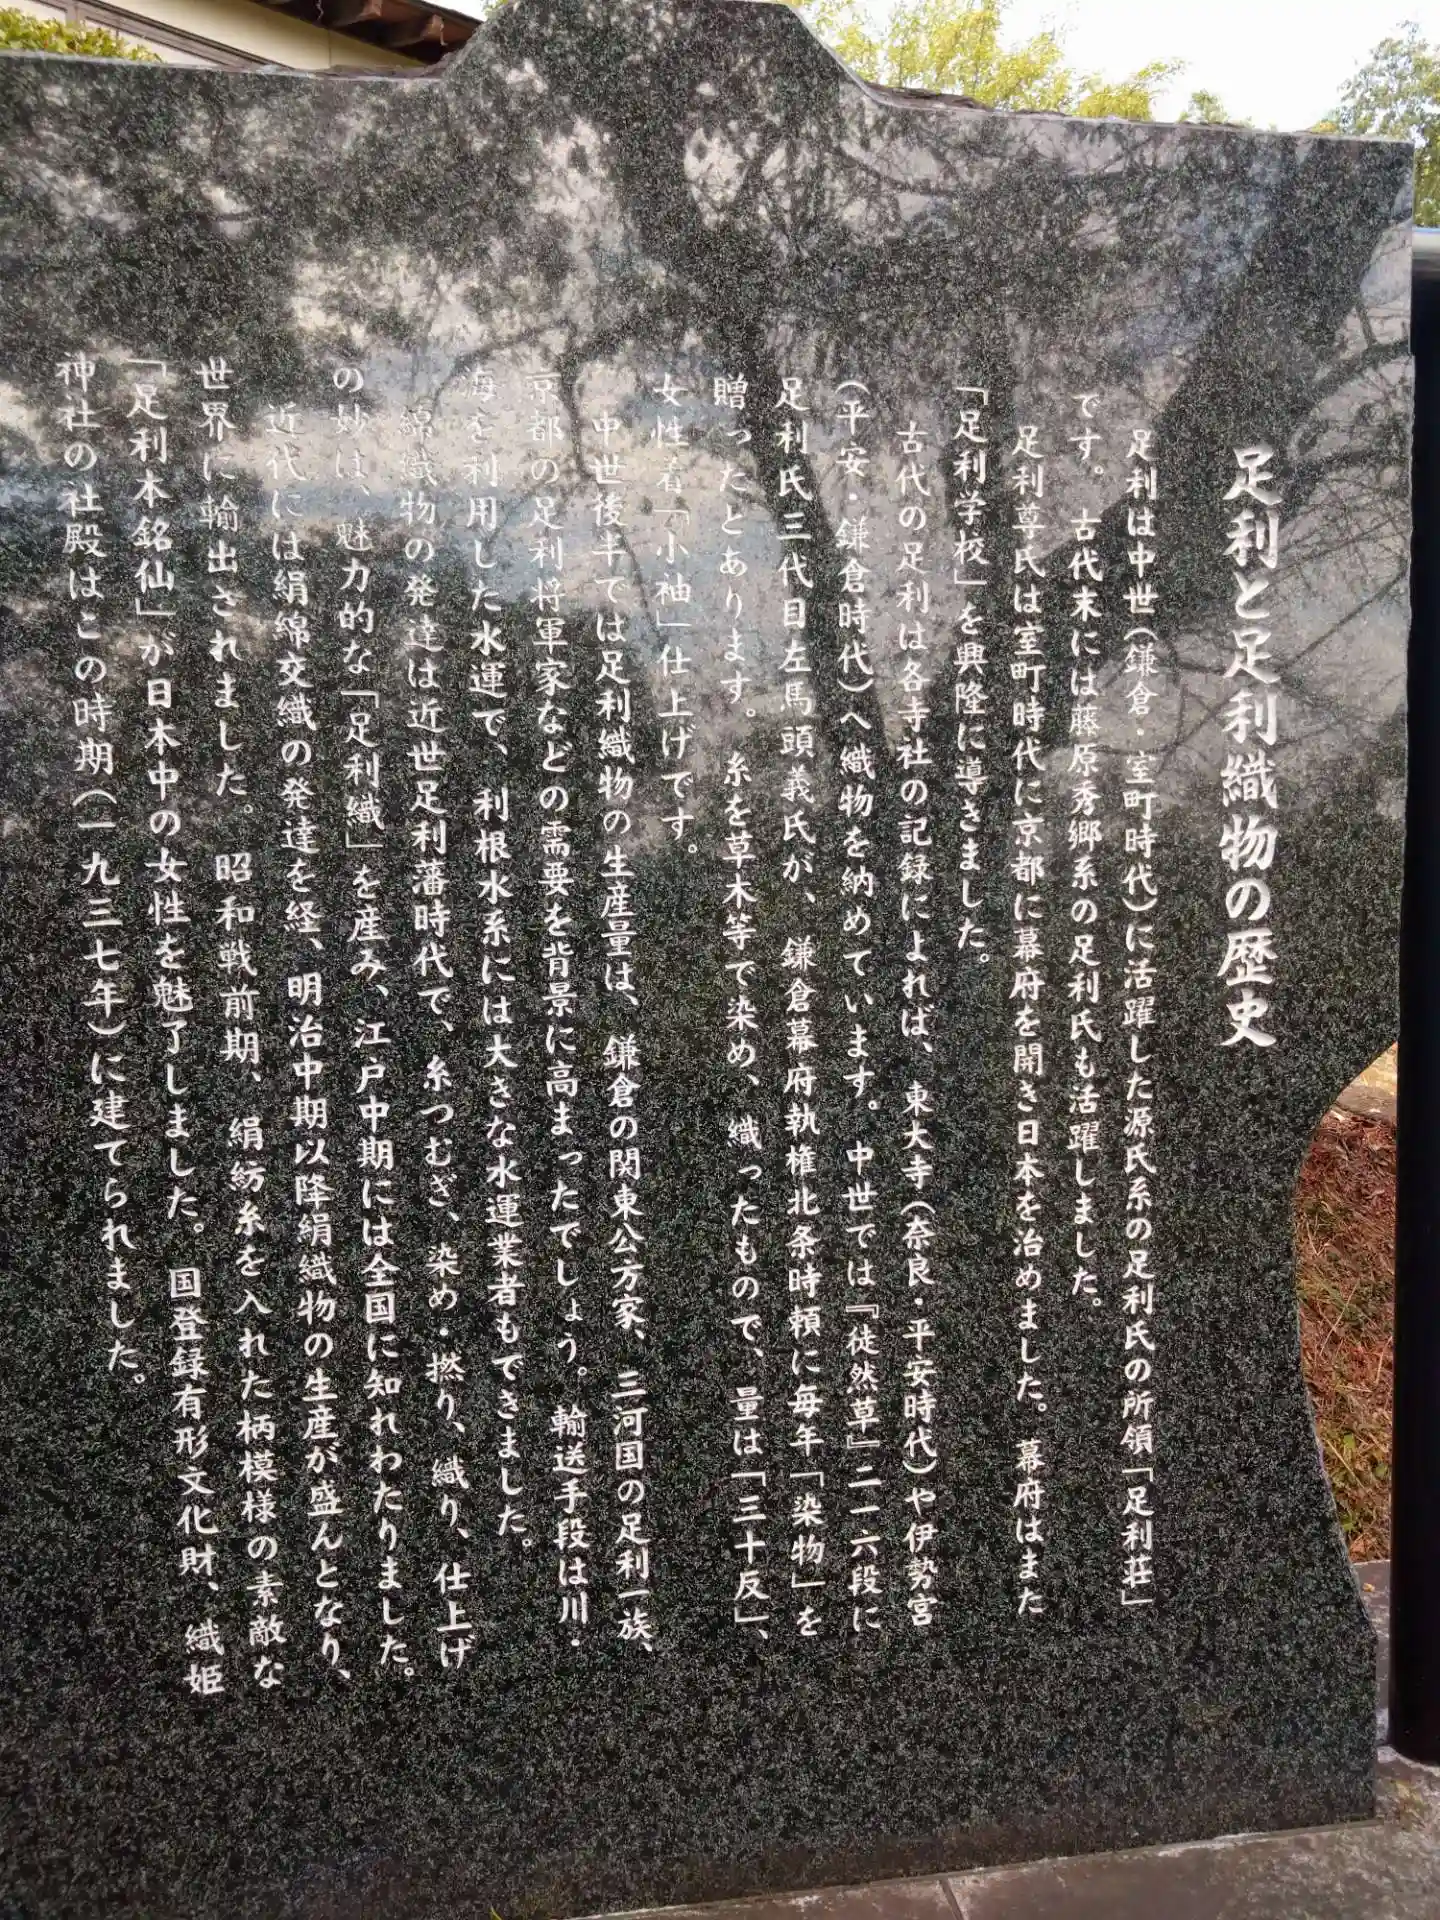 足利と足利織物の歴史
足利は中世（鎌倉・室町時代）に活躍した源氏系の足利氏の所領「足利荘」
です。古代末には藤原秀郷系の足利氏も活躍しました。
足利尊氏は室町時代に京都に幕府を開き日本を治めました。幕府はまた
「足利学校」を興隆に導きました。
古代の足利は各寺社の記録によれば、東大寺（奈良・平安時代）や伊勢宮
（平安・鎌倉時代）へ織物を納めています。中世では『徒然草』二一六段に
足利氏三代目左馬頭義氏が、鎌倉幕府執権北条時頼に毎年「染物」を
贈ったとあります。糸を草木等で染め、織ったもので、量は「三十反」、
女性着「小袖」仕上げです。
中世後半では足利織物の生産量は、鎌倉の関東公方家、三河国の足利一族、
京都の足利将軍家などの需要を背景に高まったでしょう。輸送手段は川・
海を利用した水運で、利根水系には大きな水運業者もできました。
綿織物の発達は近世足利藩時代で、糸つむぎ、染め・撚り、織り、仕上げ
の妙は、魅力的な「足利織」を産み、江戸中期には全国に知れわたりました。
近代には絹綿交織の発達を経、明治中期以降絹織物の生産が盛んとなり、
世界に輸出されました。昭和戦前期、絹紡糸を入れた柄模様の素敵な
「足利本銘仙」が日本中の女性を魅了しました。国登録有形文化財、織姫
神社の社殿はこの時期（一九三七年）に建てられました。